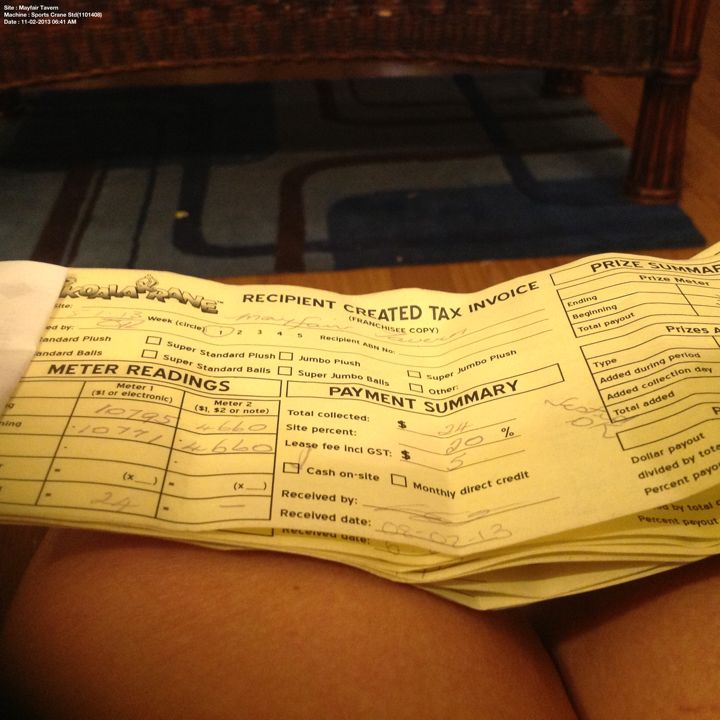 Site : Mayfair Tavern
Machine : Sports Crane Std(1101408)
Date : 11-02-2013 06:41 AM
KOALA KRANE™
RECIPIENT CREATED TAX INVOICE
(FRANCHISEE COPY)
Site: Mayfair Tavern
ed by: Week (circle) 1 2 3 4 5 Recipient ABN No:
tandard Plush Super Standard Plush Jumbo Plush Super Jumbo Plush
andard Balls Super Standard Balls Super Jumbo Balls Other:
METER READINGS
Meter 1 ($1 or electronic) Meter 2 ($1, $2 or note)
10795 4660
ning 10771 4660
(x__) (x__)
24 —
PAYMENT SUMMARY
Total collected: $ 24
Site percent: 20 %
Lease fee incl GST: $ 5
Cash on-site Monthly direct credit
Received by:
Received date: 08-02-13
Received date:
PRIZE SUMMAR
Prize Meter
Ending
Beginning
Total payout
Prizes
Type
Added during period
Added collection day
Total added
Dollar payout
divided by tota
Percent payo
by total c
Percent payout